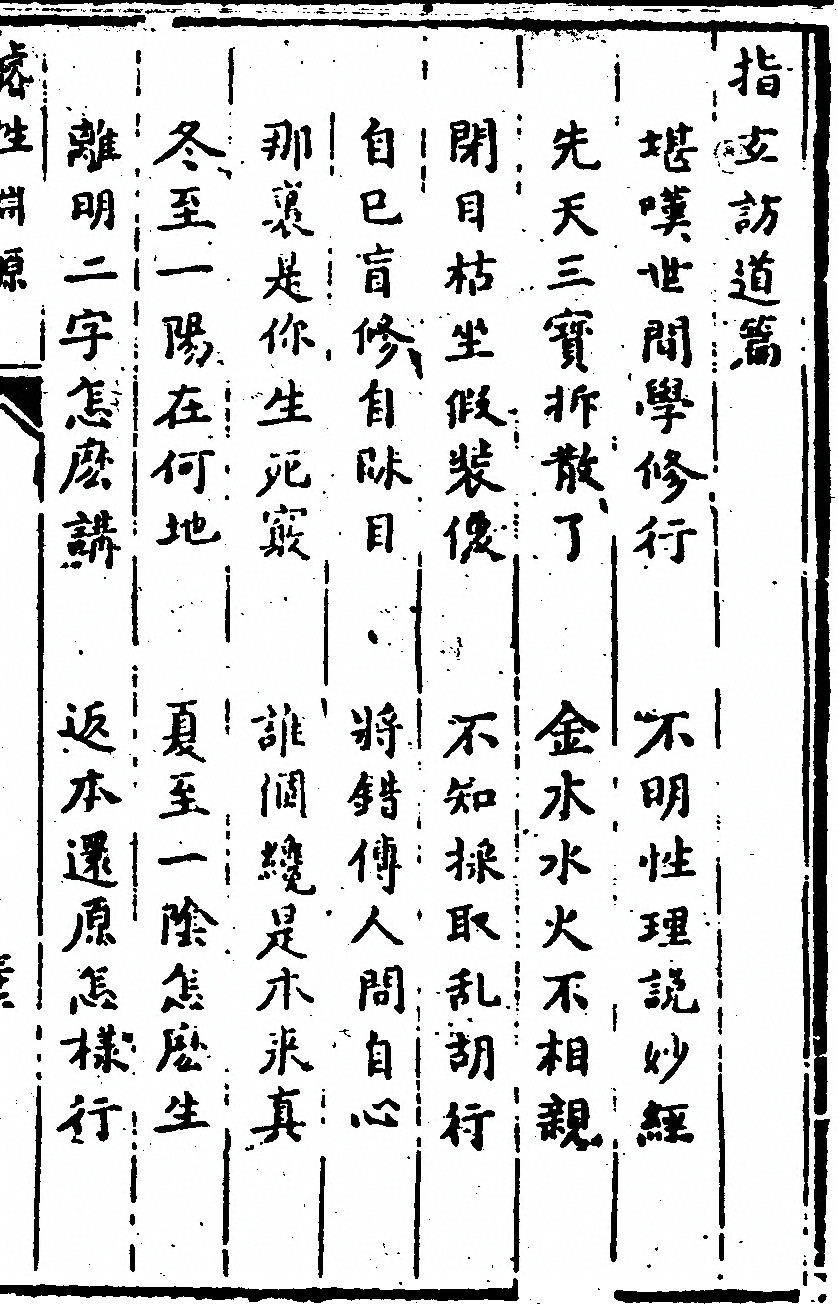 指玄訪道篇
堪嘆世間學修行　不明性理說妙經
先天三寶拆散了　金水水火不相親
閉目枯坐假裝儍　不知採取乱胡行
自已盲修自昧目　將錯傳人問自心
那裏是你生死竅　誰個纔是本来真
冬至一陽在何地　夏至一陰怎麽生
離明二字怎麽講　返本還原怎樣行
性開原